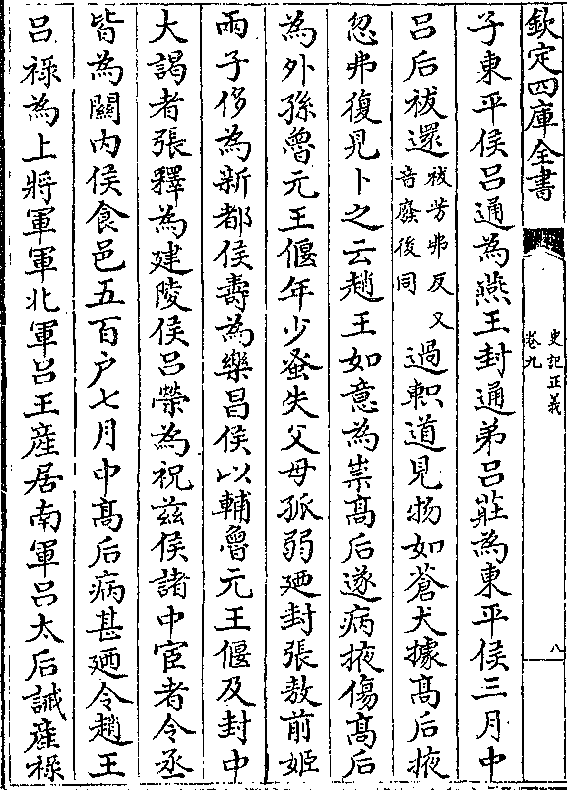 欽定四庫全書
史記正義
卷九
八
子東平侯呂通為燕王封通弟呂莊為東平侯三月中
呂后祓還祓芳弗反又音廢後同過軹道見物如蒼犬據高后掖
忽弗復見卜之云趙王如意為祟高后遂病掖傷高后
為外孫魯元王偃年少蚤失父母孤弱廼封張敖前姬
兩子侈為新都侯壽為樂昌侯以輔魯元王偃及封中
大謁者張釋為建陵侯呂榮為祝茲侯諸中宦者令丞
皆為關內侯食邑五百户七月中高后病甚廼令趙王
呂祿為上將軍軍北軍呂王産居南軍呂太后誡産祿